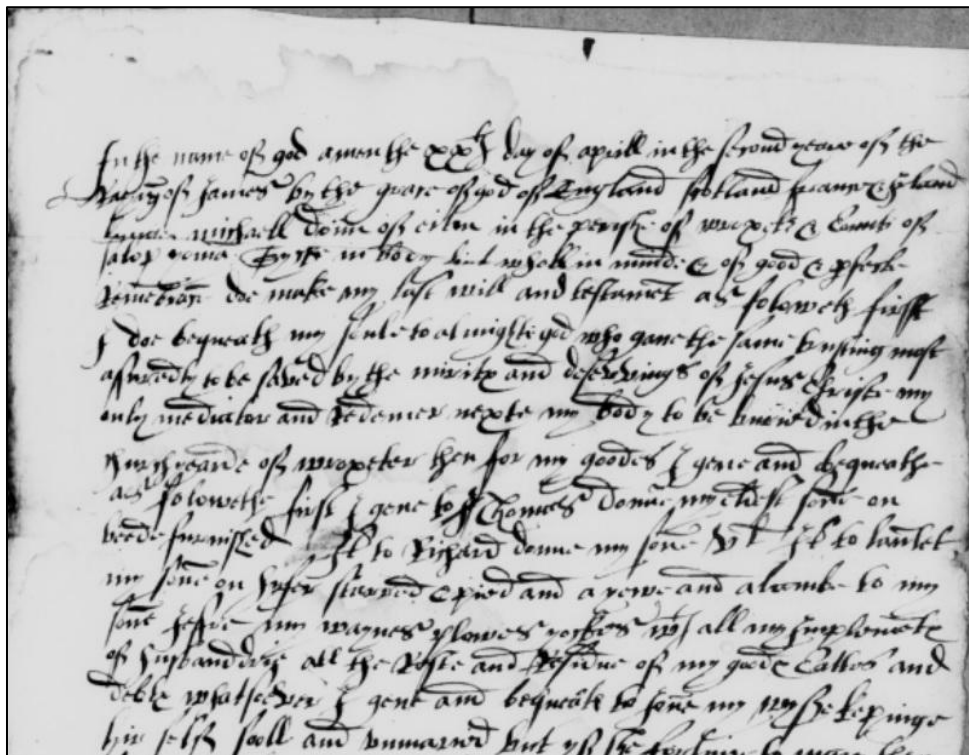 In the name of god amen the xxth day of aprill in the second yeare of the
Raigne of James by the grace of god of England scotland fraunce & Irland
michaell donne of eiton in the perishe of wroxeter & Countie of
salop yoma sycke in body but whell in minde & of good & pfecte
Remembranc doe make my last will and testament as foloweth first
I doe bequeath my soule to almightie god who gave the same trusting most
assuredly to be saved by the meritx and deservings of Jesus Christe my
only mediator and Redemer nexte my body to be buried in the
churchyearde of wroxeter then for my goodes I geve and bequeathe
as folowethe first I geve to Thomas donne my eldest sonne on
bedde furnisshed It to Richard donne my sonne It to
my sonne on heyfer starred & pied and a yewe and a lambe to my
sonne my waynes plowes yockes wth all my Implements
of husbanddrie all the Reste and Residue of my goods Cattles and
debts whatsoever I geve and bequeath to Jone my wyffe kepinge
hir selfe soll and unmaried but yf she